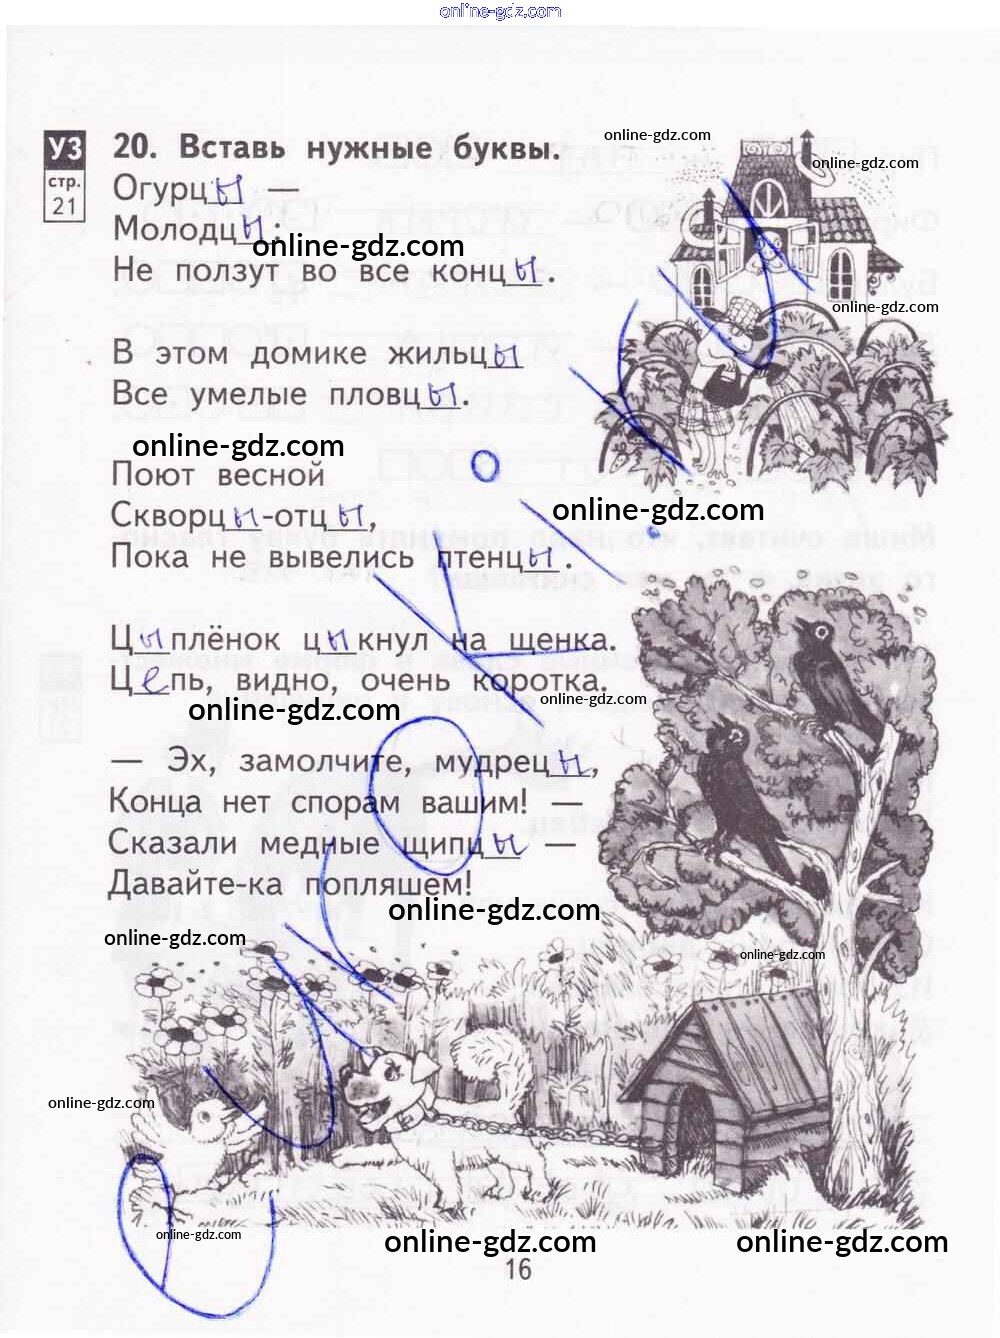 online-gdz.com
УЗ
стр.
21
20. Вставь нужные буквы.
online-gdz.com
online-gdz.com
Огурцы —
Молодцы:
online-gdz.com
Не ползут во все концы.
online-gdz.com
В этом домике жильцы
Все умелые пловцы.
online-gdz.com
Поют весной
Скворцы-отцы,
online-gdz.com
Пока не вывелись птенцы.
Цыплёнок цыкнул на щенка.
Цепь, видно, очень коротка.
online-gdz.com
online-gdz.com
— Эх, замолчите, мудрецы,
Конца нет спорам вашим! —
Сказали медные щипцы —
Давайте-ка попляшем!
online-gdz.com
online-gdz.com
online-gdz.com
online-gdz.com
online-gdz.com
online-gdz.com
online-gdz.com
16